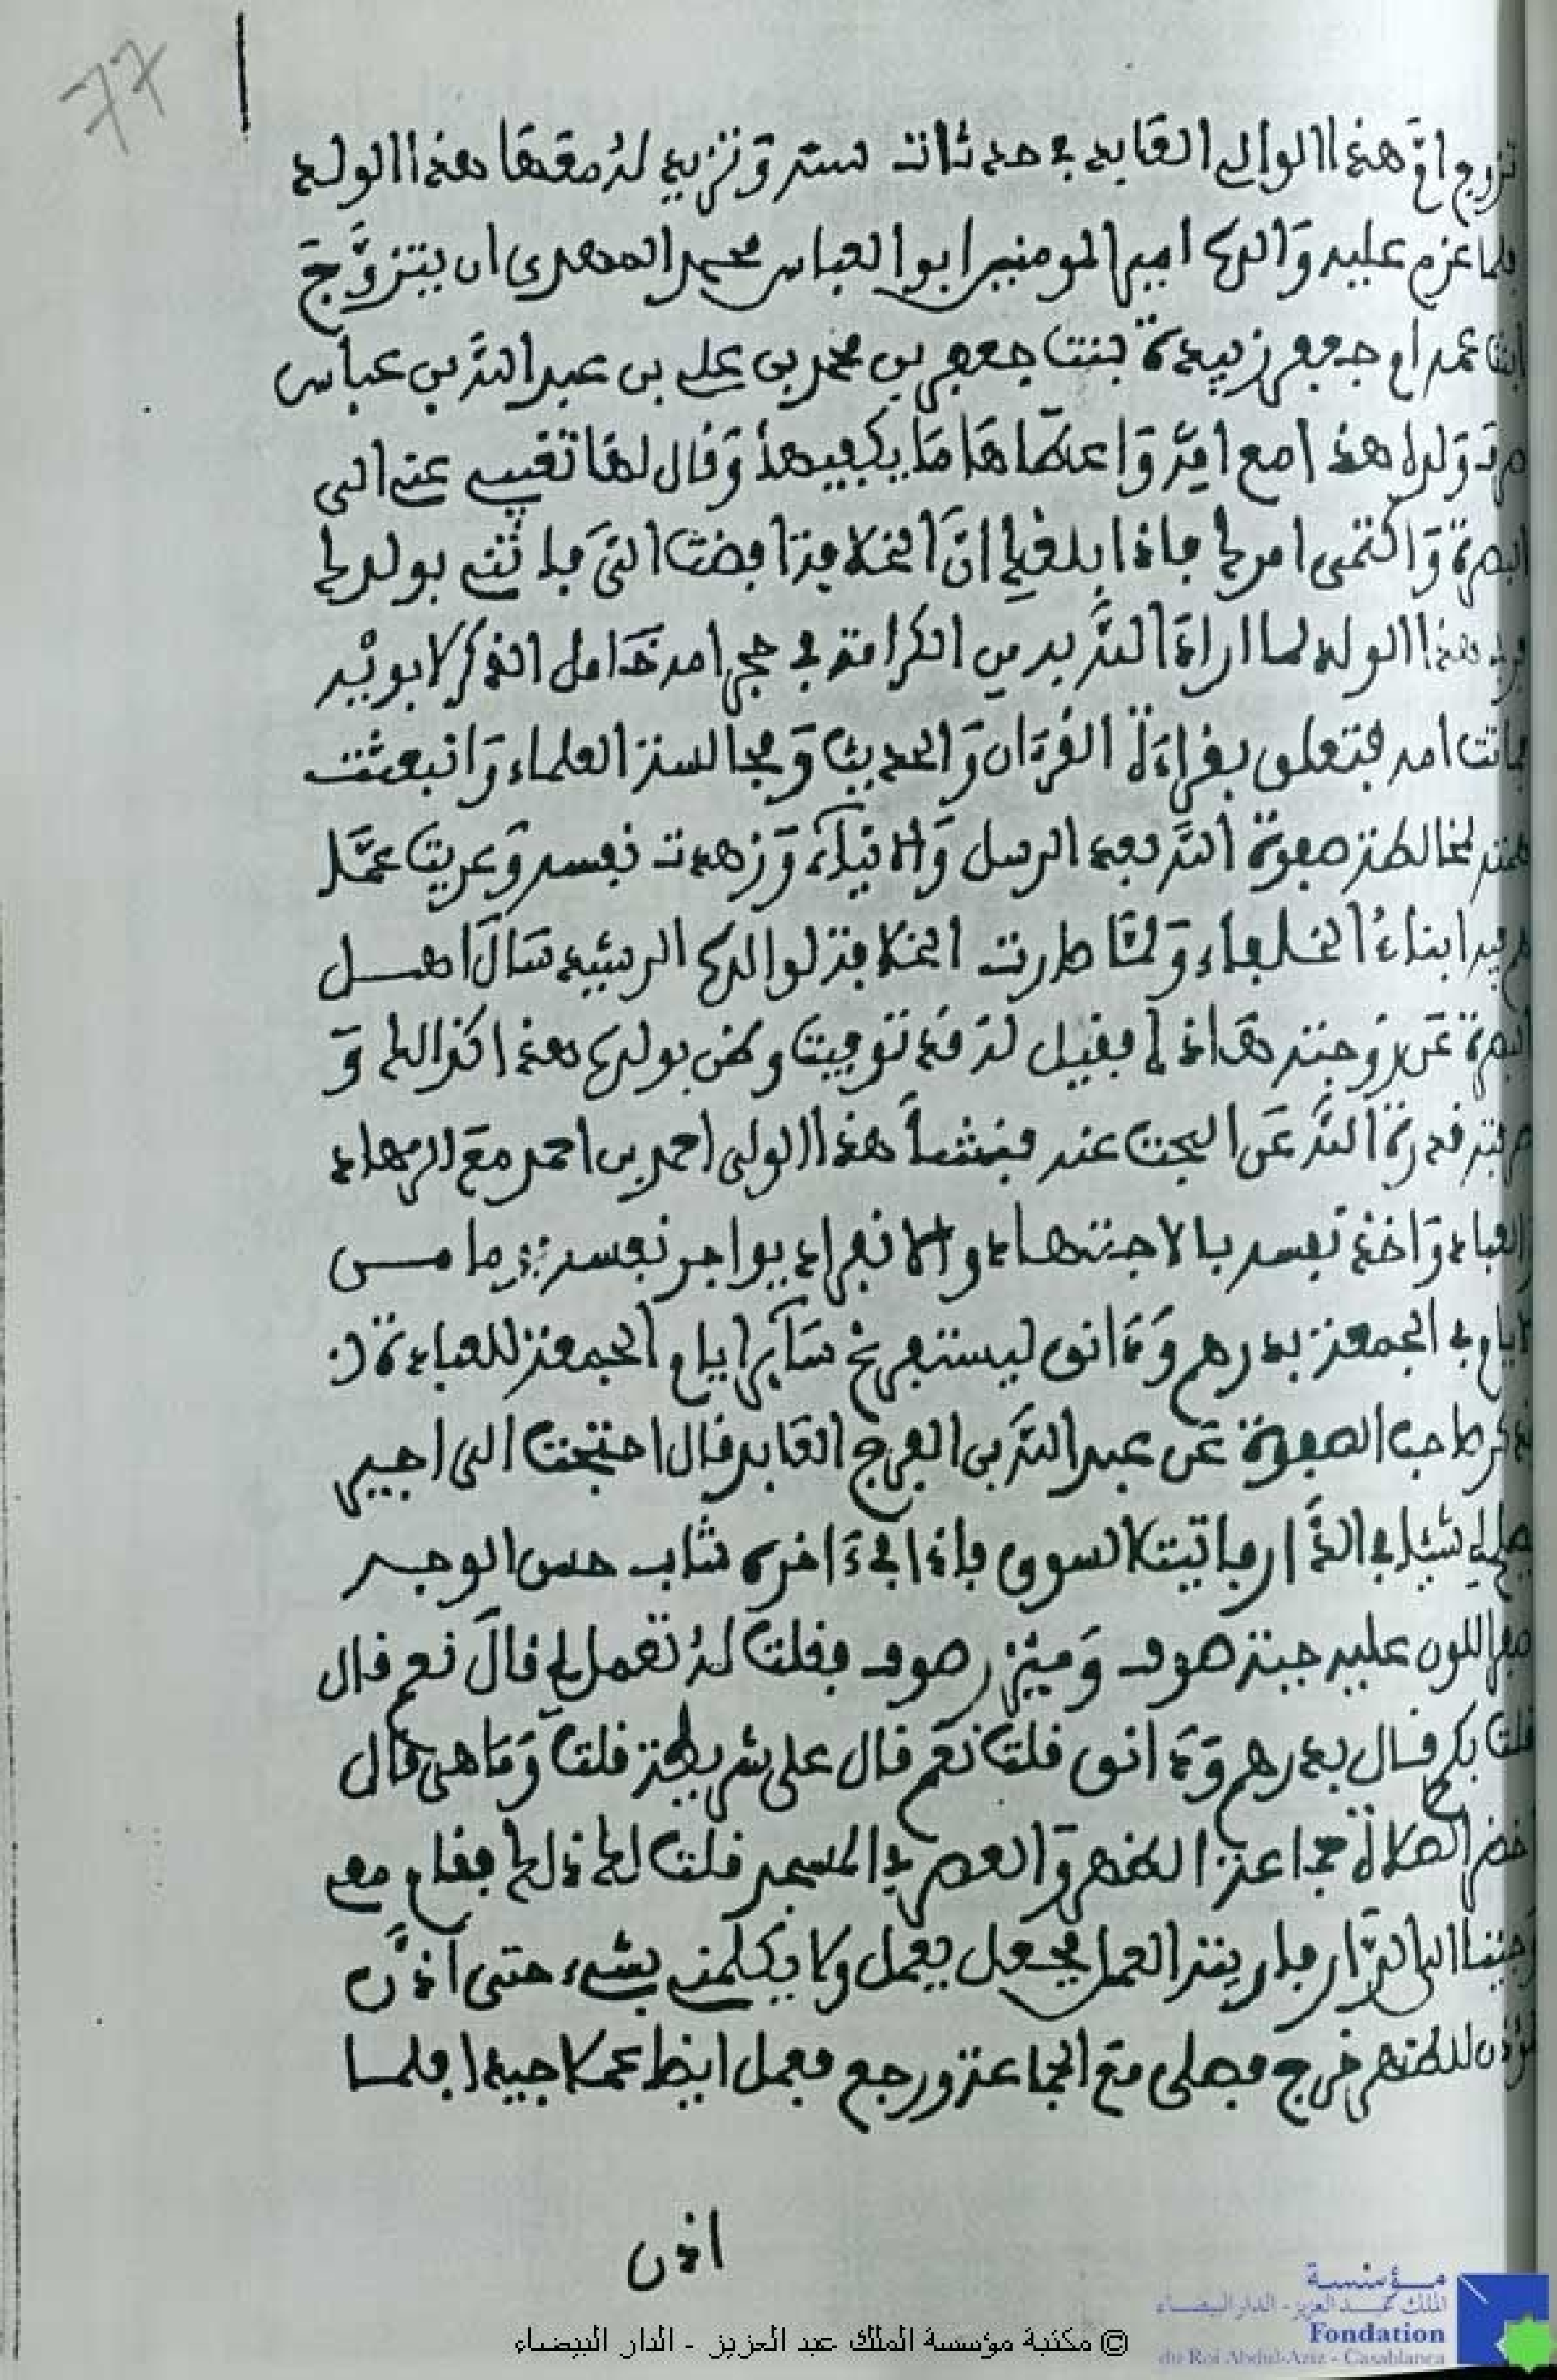 77
تزوج ام هذا الولي العابد في حداثة سنه وتزيد له معها هذا الولد
فلما عزم عليه والده امير المومنين ابو العباس محمد المهدي ان يتزوج
ابنة عمه ام جعفر زبيدة بنت جعفر بن محمد بن علي بن عبد الله بن عباس
صرف ولده هذا مع امه واعطاها ما يكفيها وقال لها تغيب عني الى
البصرة واكتمي امرك فاذا بلغك ان الخلافة افضت الي فاتني بولدك
هذا الولد لما اراد الله به من الكرامة في حجر امه خامل الذكر لا بويه
فماتت امه فتعلق بقراءة القرءان والحديث ومجالسة العلماء وانبعثت
همته لمخالطة صفوة الله بعد الرسل والانبياء وزهدت نفسه وعريت عما
فيه ابناء الخلفاء ولما صارت الخلافة لوالده الرشيد سال اهل
البصرة عن زوجته هاذه فقيل له قد توفيت وظن بولده هذا كذالك و
صرفته قدرة الله عن البحث عنه فنشا هذا الولي احمد بن احمد مع الزهاد
والعباد واخذ نفسه بالاجتهاد والانفراد يواجر نفسه يوما من
الايام في الجمعة بدرهم ودانق ليستفرغ سائر ايام الجمعة للعبادة
ذكر صاحب الصفوة عن عبد الله بن الفرج العابد قال احتجت الى اجير
يصلح لي شيئا في الدار فاتيت السوق فاذا في ءاخره شاب حسن الوجه
صفر اللون عليه جبة صوف ومئزر صوف فقلت له تعمل لي قال نعم قال
قلت بكم قال بدرهم ودانق قلت نعم قال على شريطة قلت وما هي قال
احضر الصلاة جماعة الظهر والعصر في المسجد قلت لك ذلك فقام معي
وجئنا الى الدار فاريته العمل فجعل يعمل ولا يكلمني بشيء حتى اذن
مؤذن للظهر خرج فصلى مع الجماعة ورجع فعمل ايضا عملا جيدا فلما
اذن
مؤسسة
الملك عبد العزيز - الدار البيضاء
Fondation
du Roi Abdul-Aziz - Casablanca
© مكتبة مؤسسة الملك عبد العزيز - الدار البيضاء